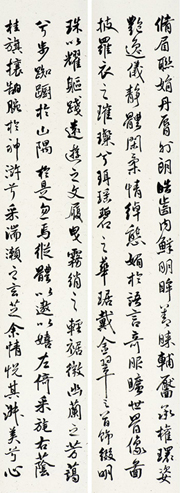 脩眉聯娟丹脣外朗皓齒内鮮明眸善睞輔靨承權瓌姿
艷逸儀靜體閑柔情綽態媚於語言奇服曠世骨像應圖
披羅衣之璀璨兮珥瑤碧之華琚戴金翠之首飾綴明
珠以耀軀踐遠遊之文履曳霧綃之輕裾微幽蘭之芳藹
兮步踟躕於山隅於是忽焉縱體以遨以嬉左倚采旄右蔭
桂旗攘皓腕於神滸兮采湍瀨之玄芝余情悅其淑美兮心